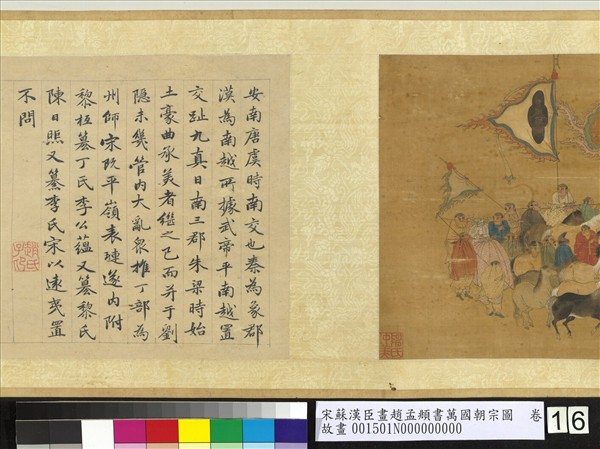 安南唐虞時南交也秦為象郡
漢為南越所據武帝平南越置
交趾九真日南三郡朱梁時始
土豪曲承美者繼之已而并于劉
隱未幾管内大亂眾推丁部為
州帥宋既平嶺表璉遂内附
黎桓簒丁氏李公蘊又簒黎氏
陳日照又簒李氏宋以遠夷置
不問
趙氏子昂
宋蘇漢臣畫趙孟頫書萬國朝宗圖 卷
故畫 001501N000000000
16